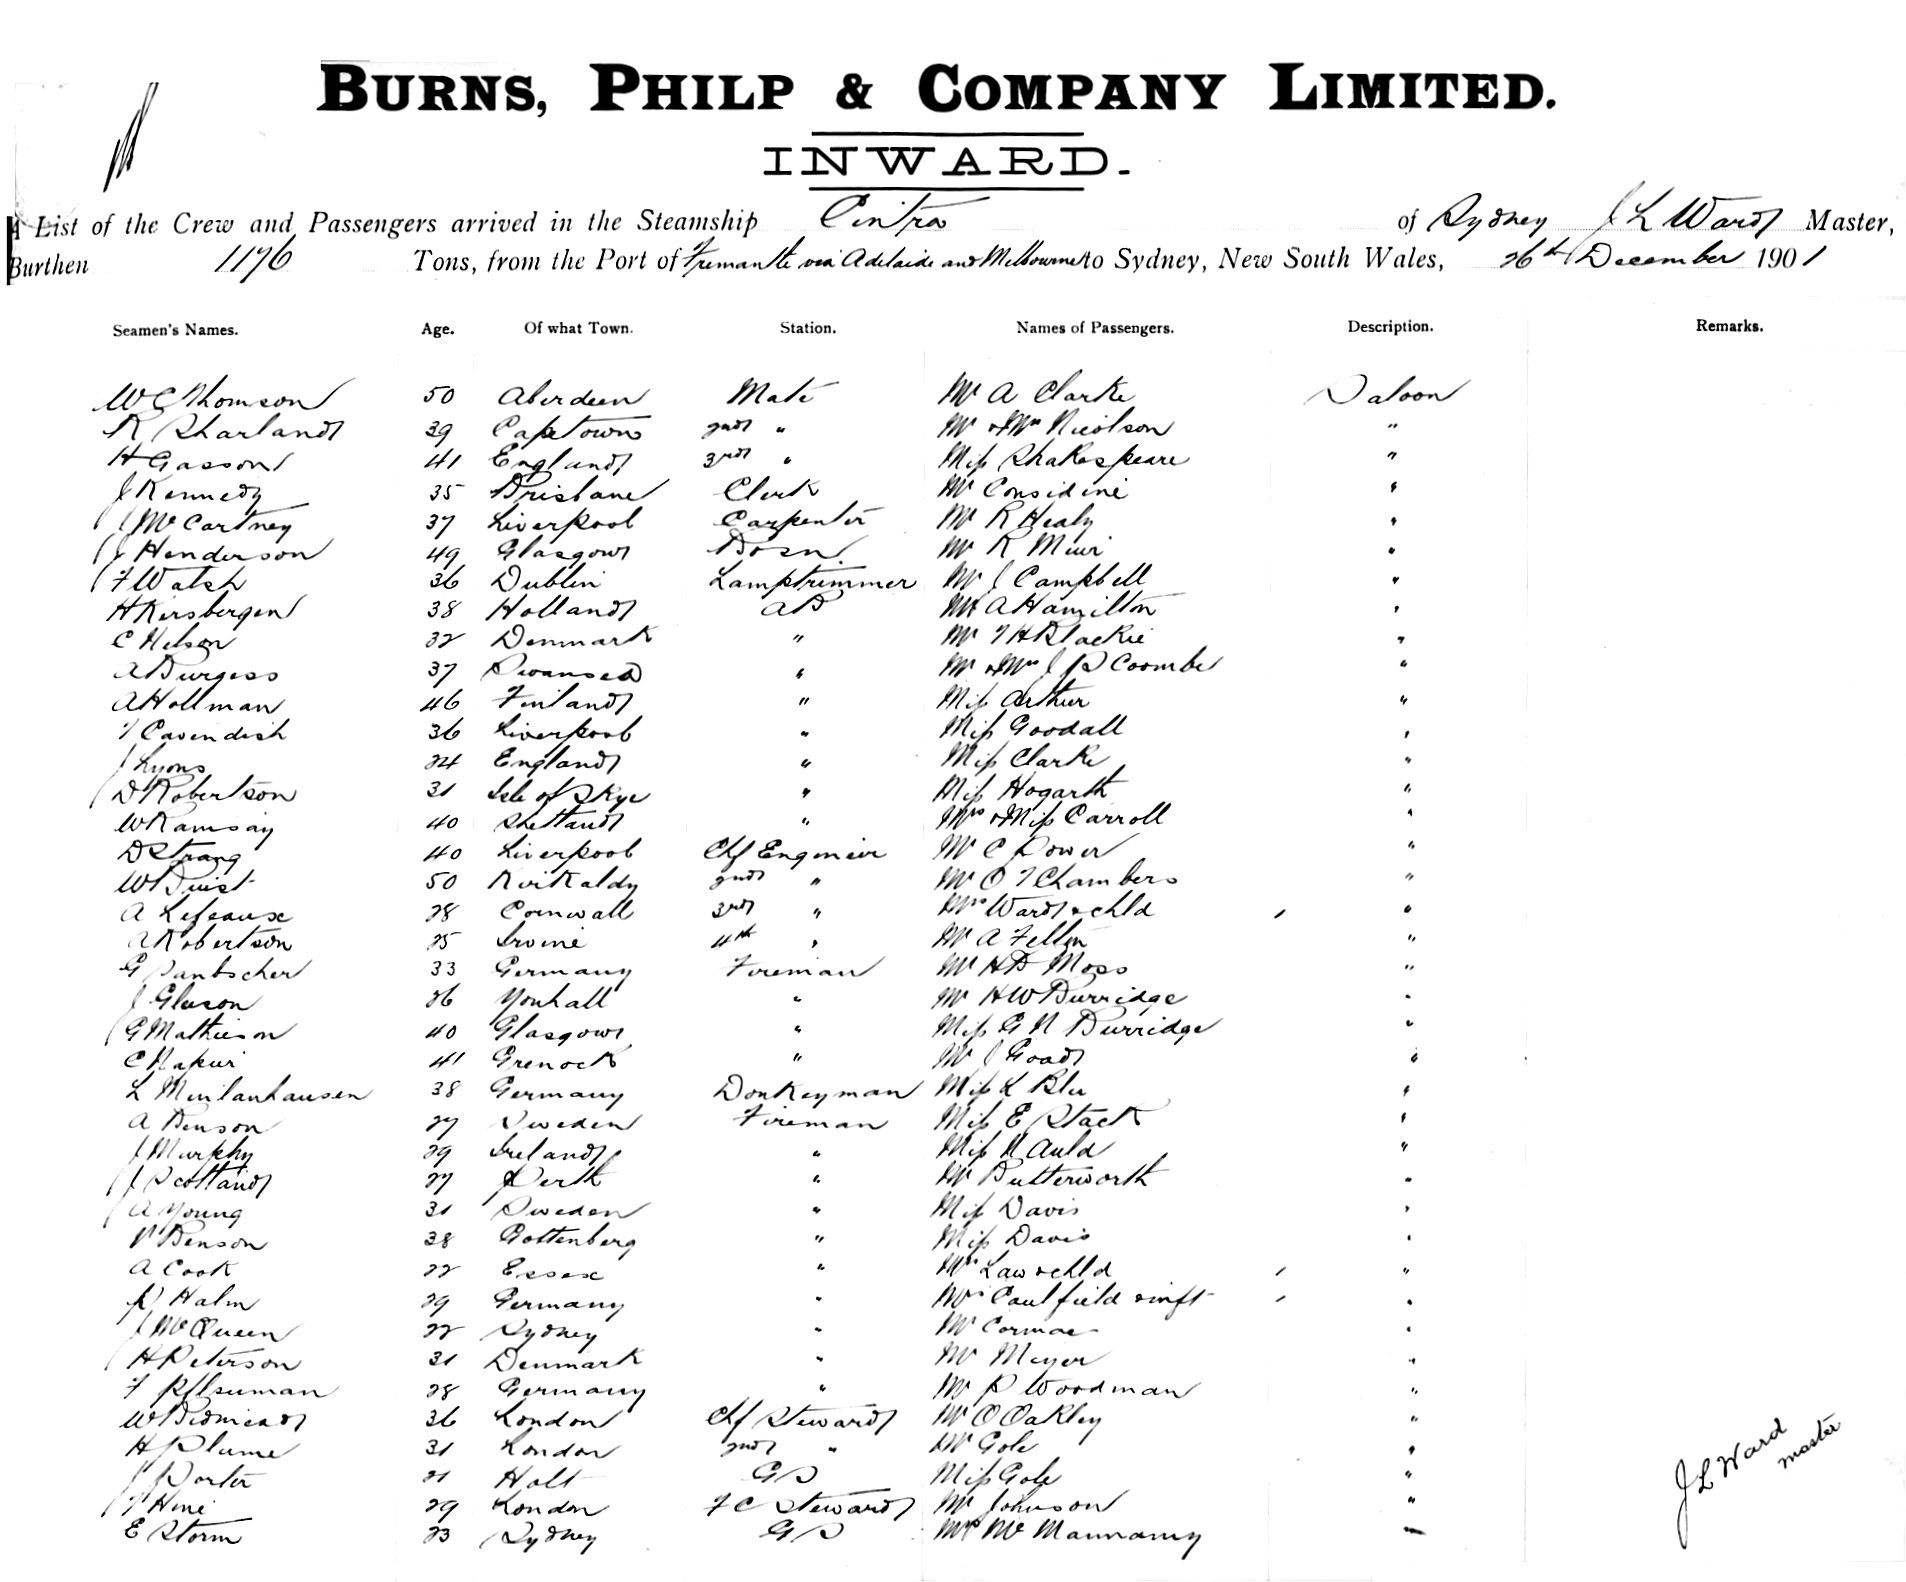 BURNS, PHILP & COMPANY LIMITED.
INWARD.
A List of the Crew and Passengers arrived in the Steamship Cintra of Sydney J L Ward Master,
Burthen 1176 Tons, from the Port of Fremantle via Adelaide and Melbourne to Sydney, New South Wales, 26th December 1901
Seamen's Names. Age. Of what Town. Station. Names of Passengers. Description. Remarks.
W C Thomson 50 Aberdeen Mate Mr A Clarke Saloon
R Sharland 39 Capetown 2nd " Mr & Mrs Nicolson "
H Gasson 41 England 3rd " Miss Shakespeare "
J Kennedy 35 Brisbane Clerk Mr Considine "
J McCartney 37 Liverpool Carpenter Mr R Healy "
J Henderson 49 Glasgow Bosn Mr R Muir "
F Walsh 36 Dublin Lamptrimmer Mr J Campbell "
H Kersbergen 38 Holland AB Mr A Hamilton "
C Nelson 32 Denmark " Mr T H Blackie "
A Burgess 37 Swansea " Mr & Mrs J P Coombe "
A Hollman 46 Finland " Miss Arthur "
T Cavendish 36 Liverpool " Miss Goodall "
J Lyons 24 England " Miss Clarke "
D Robertson 31 Isle of Skye " Miss Hogarth "
W Ramsay 40 Shetland " Mrs & Miss Carroll "
D Strang 40 Liverpool Chf Engineer Mr C Power "
W Duist 50 Kirkaldy 2nd " Mr O T Chambers "
A Lefeaux 28 Cornwall 3rd " Mrs Ward & chld "
A Robertson 25 Irvine 4th " Mr A "
G 33 Germany Fireman Mr H B Moss "
J Gleeson 26 Youhall " Mr H W Burridge "
G Mathieson 40 Glasgow " Miss G N Burridge "
C Napier 41 Grenock " Mr J Goad "
L 38 Germany Donkeyman Miss L Blee "
A Benson 27 Sweden Fireman Miss E Stack "
J Murphy 29 Ireland " Miss N Auld "
J Scotland 27 Perth " Mr Butterworth "
A Young 31 Sweden " Miss Davis "
V Benson 38 Gottenberg " Miss Davis "
A Cook 22 Essex " Mrs Law & chld "
P Halm 29 Germany " Mrs Caulfield & inft "
J McQueen 22 Sydney " Mr Cormac "
H Peterson 31 Denmark " Mr Meyer "
F 28 Germany " Mr P Woodman "
W Bidmead 36 London Chf Steward Mr O Oakley "
H Plume 31 London 2nd " Mr Gole "
J Porter 21 Holt GS Miss Gole "
T Hine 29 London F C Steward Mr Johnson "
E Storm 23 Sydney GS Mrs "
J L Ward
master